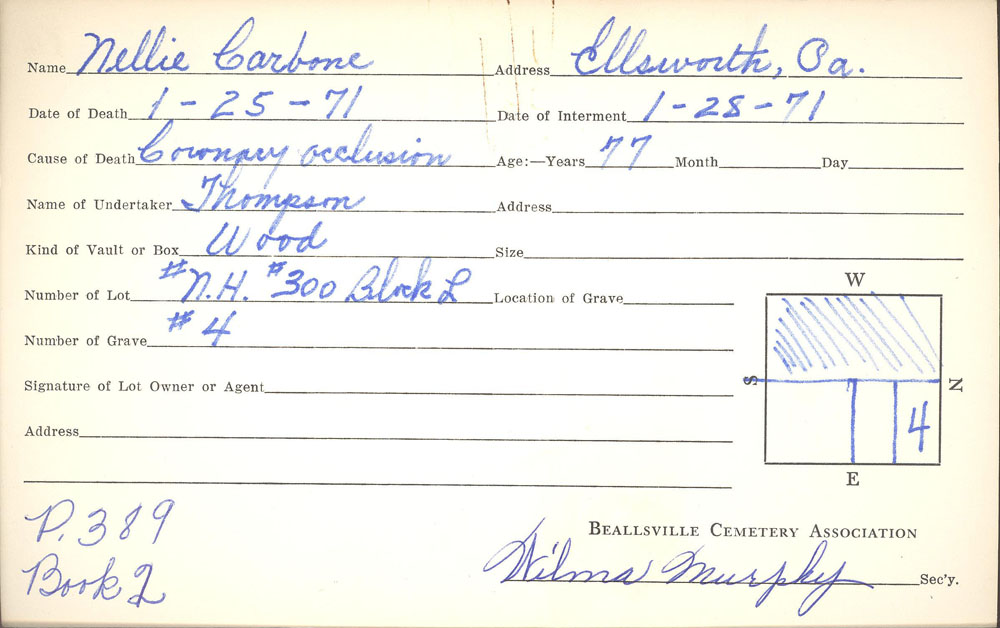 Name Nellie Carbone Address Ellsworth, Pa.
Date of Death 1-25-71 Date of Interment 1-28-71
Cause of Death Coronary occlusion Age:—Years 77 Month Day
Name of Undertaker Thompson Address
Kind of Vault or Box Wood Size
Number of Lot # N.H. #300 Block L Location of Grave
Number of Grave # 4
Signature of Lot Owner or Agent
Address
W
S N
4
E
P. 389
Book 2
BEALLSVILLE CEMETERY ASSOCIATION
Wilma Murphy Sec'y.